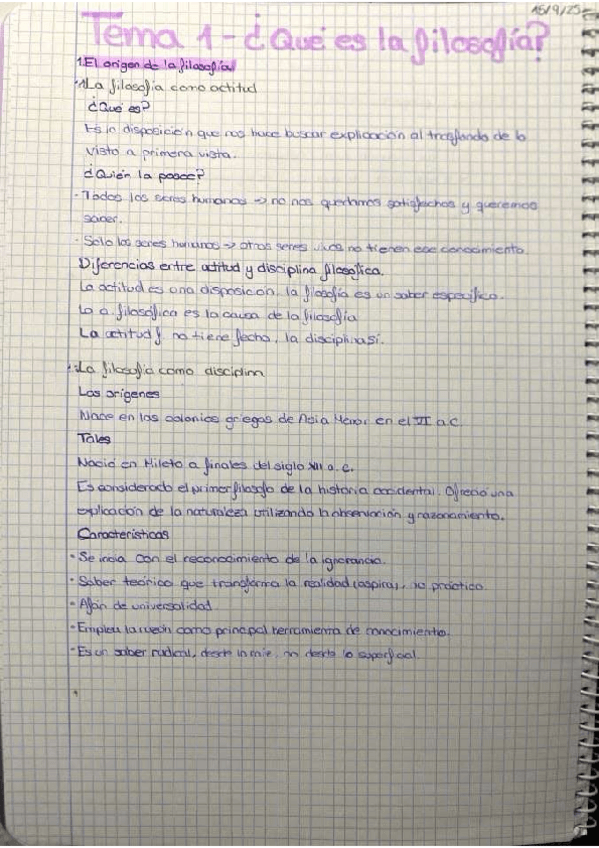 15/9/25
Tema 1 - ¿Qué es la filosofía?
1. El origen de la filosofía
La filosofía como actitud
¿Qué es?
Es la disposición que nos hace buscar explicación al trasfondo de lo
visto a primera vista.
¿Quién la posee?
- Todos los seres humanos → no nos quedamos satisfechos y queremos
saber.
- Solo los seres humanos → otros seres no tienen ese conocimiento.
Diferencias entre actitud y disciplina filosófica.
La actitud es una disposición, la filosofía es un saber específico.
La a. filosófica es la causa de la filosofía
La actitud f no tiene fecha, la disciplina sí.
La filosofía como disciplina
Los orígenes
Nace en las colonias griegas de Asia Menor en el VI a.C.
Tales
Nació en Mileto a finales del siglo a.C.
Es considerado el primer filósofo de la historia occidental. Ofreció una
explicación de la naturaleza utilizando la observación y razonamiento.
Características
- Se inicia con el reconocimiento de la ignorancia.
- Saber teórico que transforma la realidad (aspira), no práctico.
- Afán de universalidad
- Emplea la razón como principal herramienta de conocimiento.
- Es un saber radical, desde la raíz, no desde lo superficial.